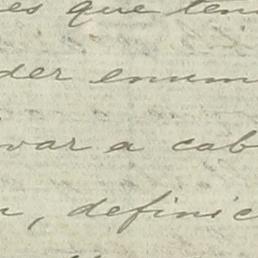 es que ten
der enum
var a cab
n, definic